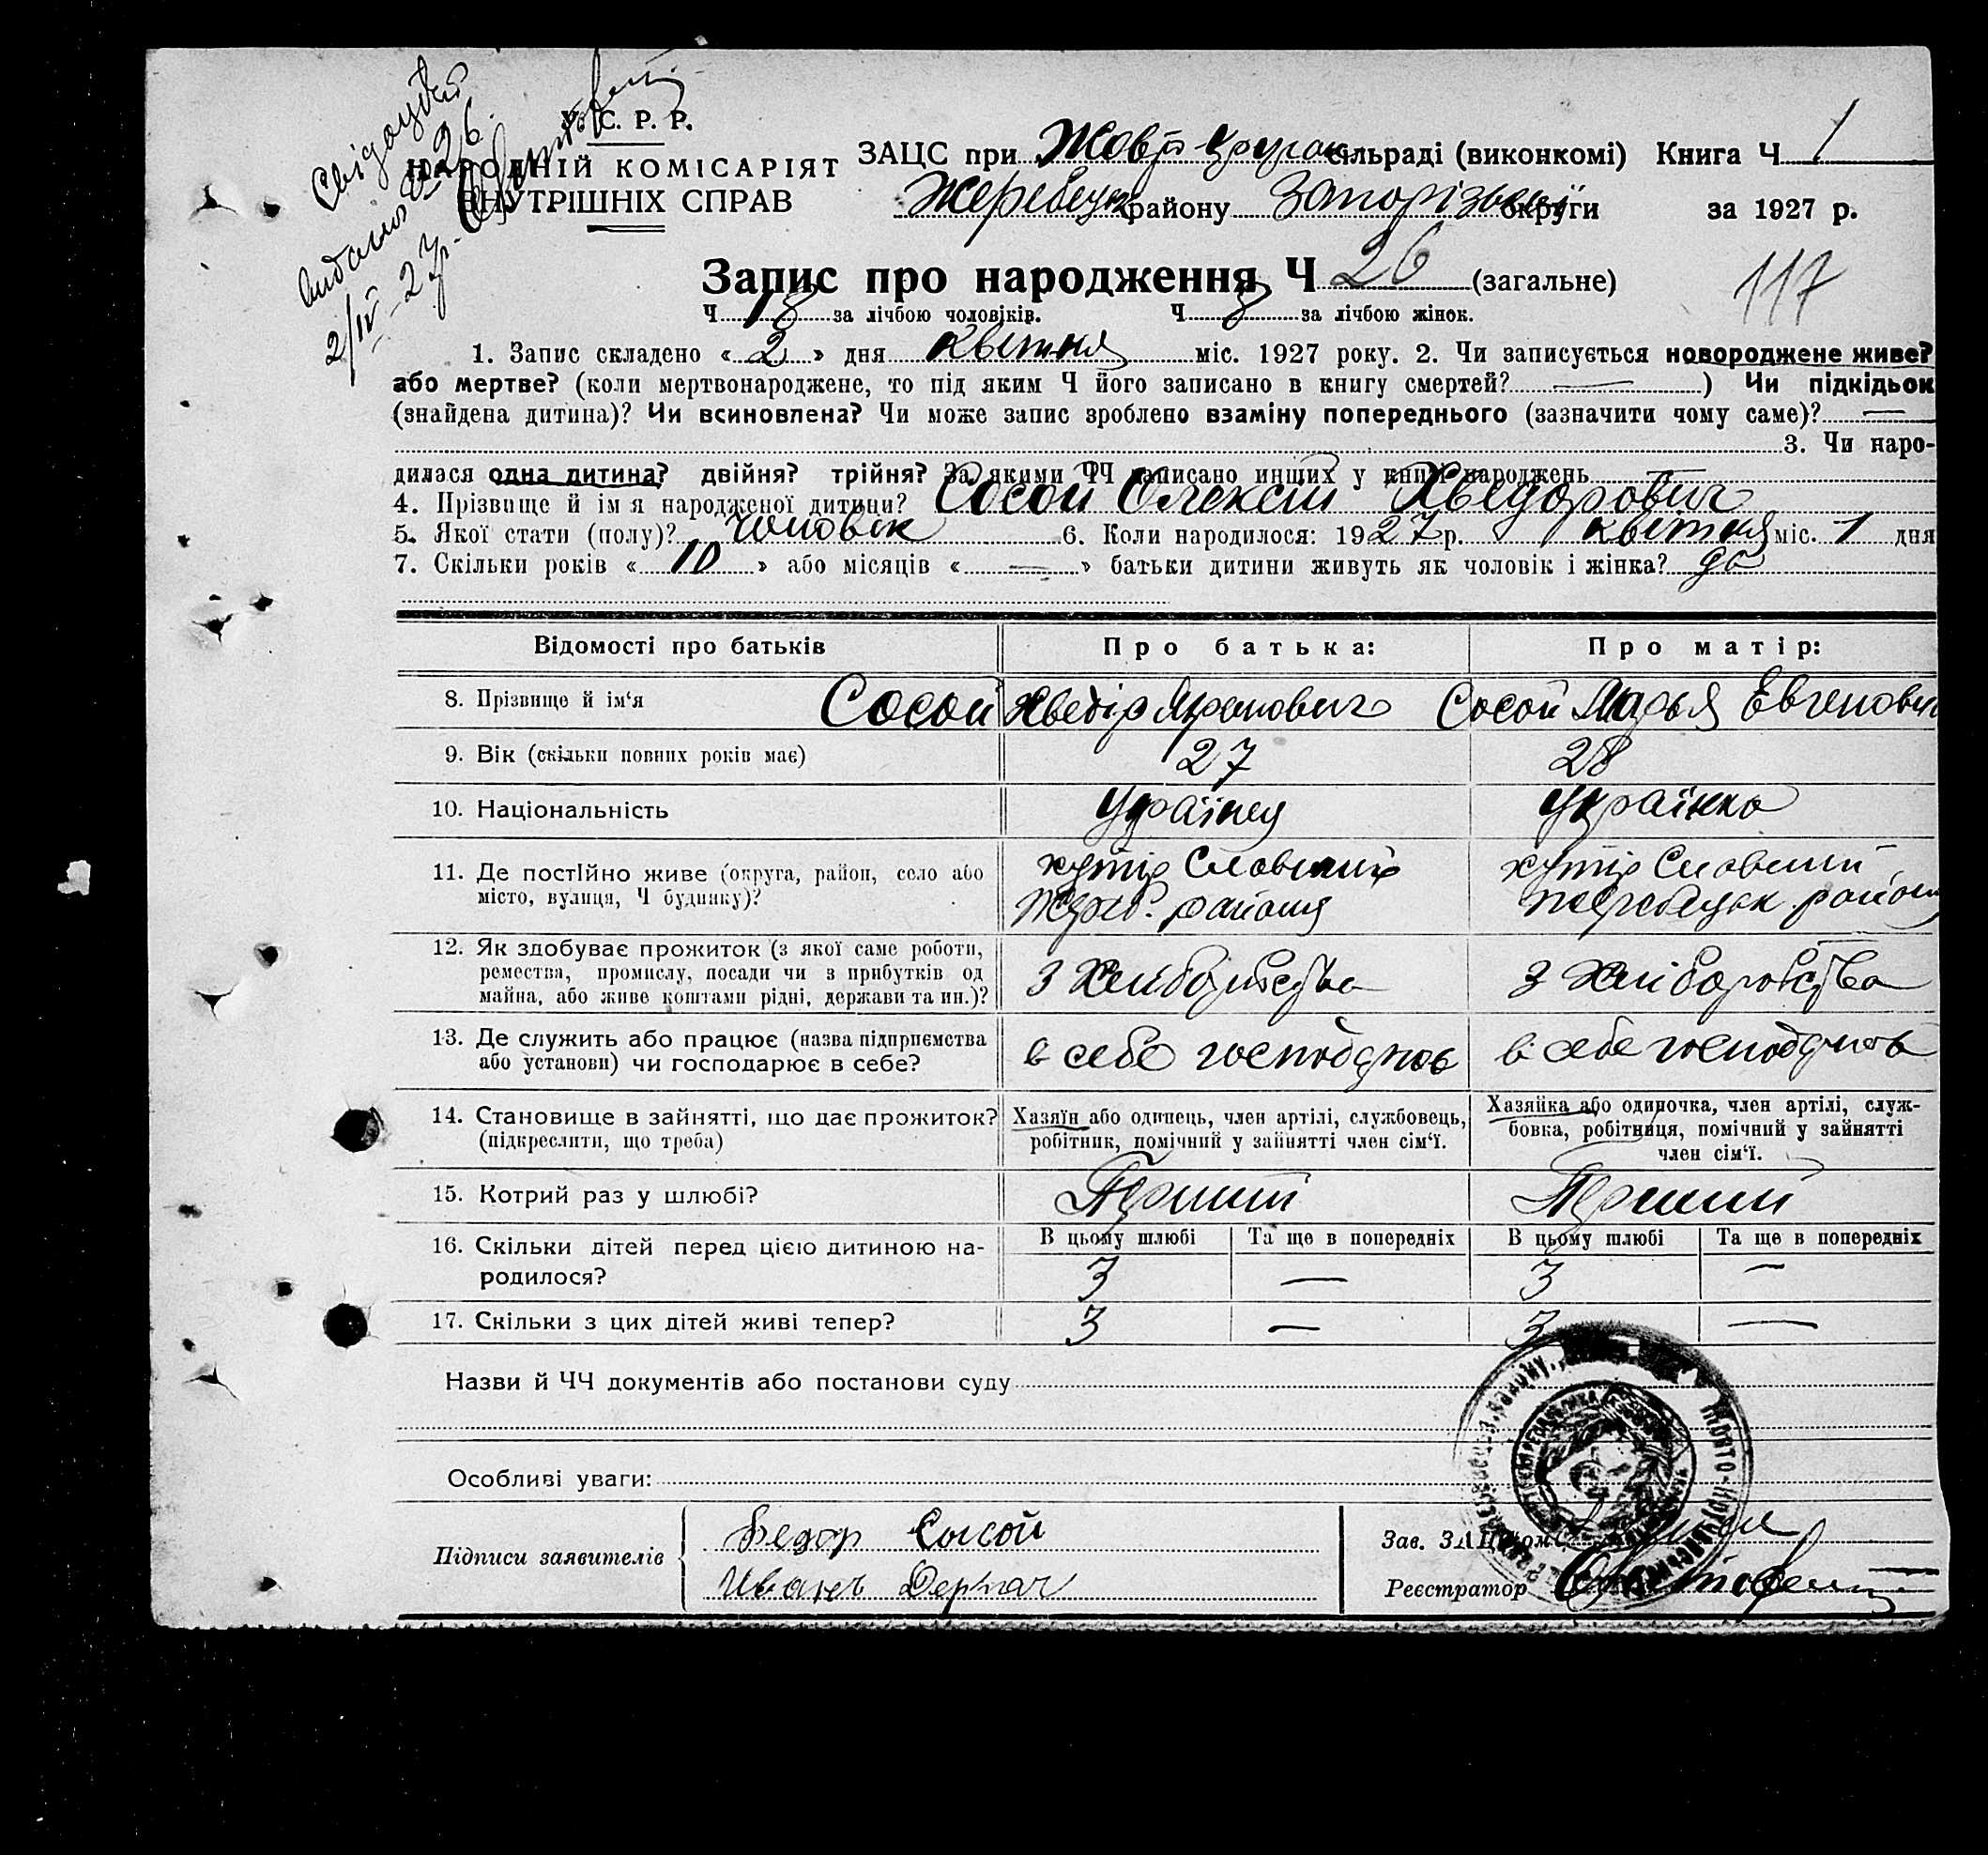 Свідоцтво
видано Ч 26.
2/IV-27р.
У. С. Р. Р.
НАРОДНІЙ КОМІСАРІЯТ
ВНУТРІШНІХ СПРАВ
ЗАЦС при Жовто-Круган сільраді (виконкомі) Книга Ч 1
Жеребецьк району Запорізької округи за 1927 р.
Запис про народження Ч 26 (загальне)
117
Ч 18 за лічбою чоловіків. Ч 8 за лічбою жінок.
1. Запис складено « 2 » дня квітня міс. 1927 року. 2. Чи записується новороджене живе?
або мертве? (коли мертвонароджене, то під яким Ч його записано в книгу смертей? — ) Чи підкідьок
(знайдена дитина)? Чи всиновлена? Чи може запис зроблено взаміну попереднього (зазначити чому саме)? —
3. Чи наро-
дилася одна дитина? двійня? трійня? За якими ЧЧ записано инших у книгі народжень
4. Прізвище й ім'я народженої дитини? Сосой Олексій Хведорович
5. Якої стати (полу)? чоловік 6. Коли народилося: 1927 р. квітня міс. 1 дня
7. Скільки років « 10 » або місяців « — » батьки дитини живуть як чоловік і жінка? да
Відомості про батьків Про батька: Про матір:
8. Прізвище й ім‘я Сосой Хведір Сосой Марья Евгенович
9. Вік (скільки повних років має) 27 28
10. Національність Українец Українка
11. Де постійно живе (округа, район, село або хутір хутір
місто, вулиця, Ч будинку)? Жереб. району Жеребецьк. району
12. Як здобуває прожиток (з якої саме роботи,
ремества, промислу, посади чи з прибутків од
майна, або живе коштами рідні, держави та ин.)? З Хліборобства З Хліборобства
13. Де служить або працює (назва підприємства
або установи) чи господарює в себе? в себе господарює в себе господарює
14. Становище в зайнятті, що дає прожиток? Хазяїн або одинець, член артілі, службовець, Хазяйка або одиночка, член артілі, служ-
(підкреслити, що треба) робітник, помічний у зайнятті член сім‘ї. бовка, робітниця, помічний у зайнятті
член сім‘ї.
15. Котрий раз у шлюбі? Перший Перший
16. Скільки дітей перед цією дитиною на- В цьому шлюбі Та ще в попередніх В цьому шлюбі Та ще в попередніх
родилося? 3 — 3 —
17. Скільки з цих дітей живі тепер? 3 — 3 —
Назви й ЧЧ документів або постанови суду
Особливі уваги:
Підписи заявителів Федор Сосой
Иванъ Деркач
Зав. ЗАЦСом
Реєстратор